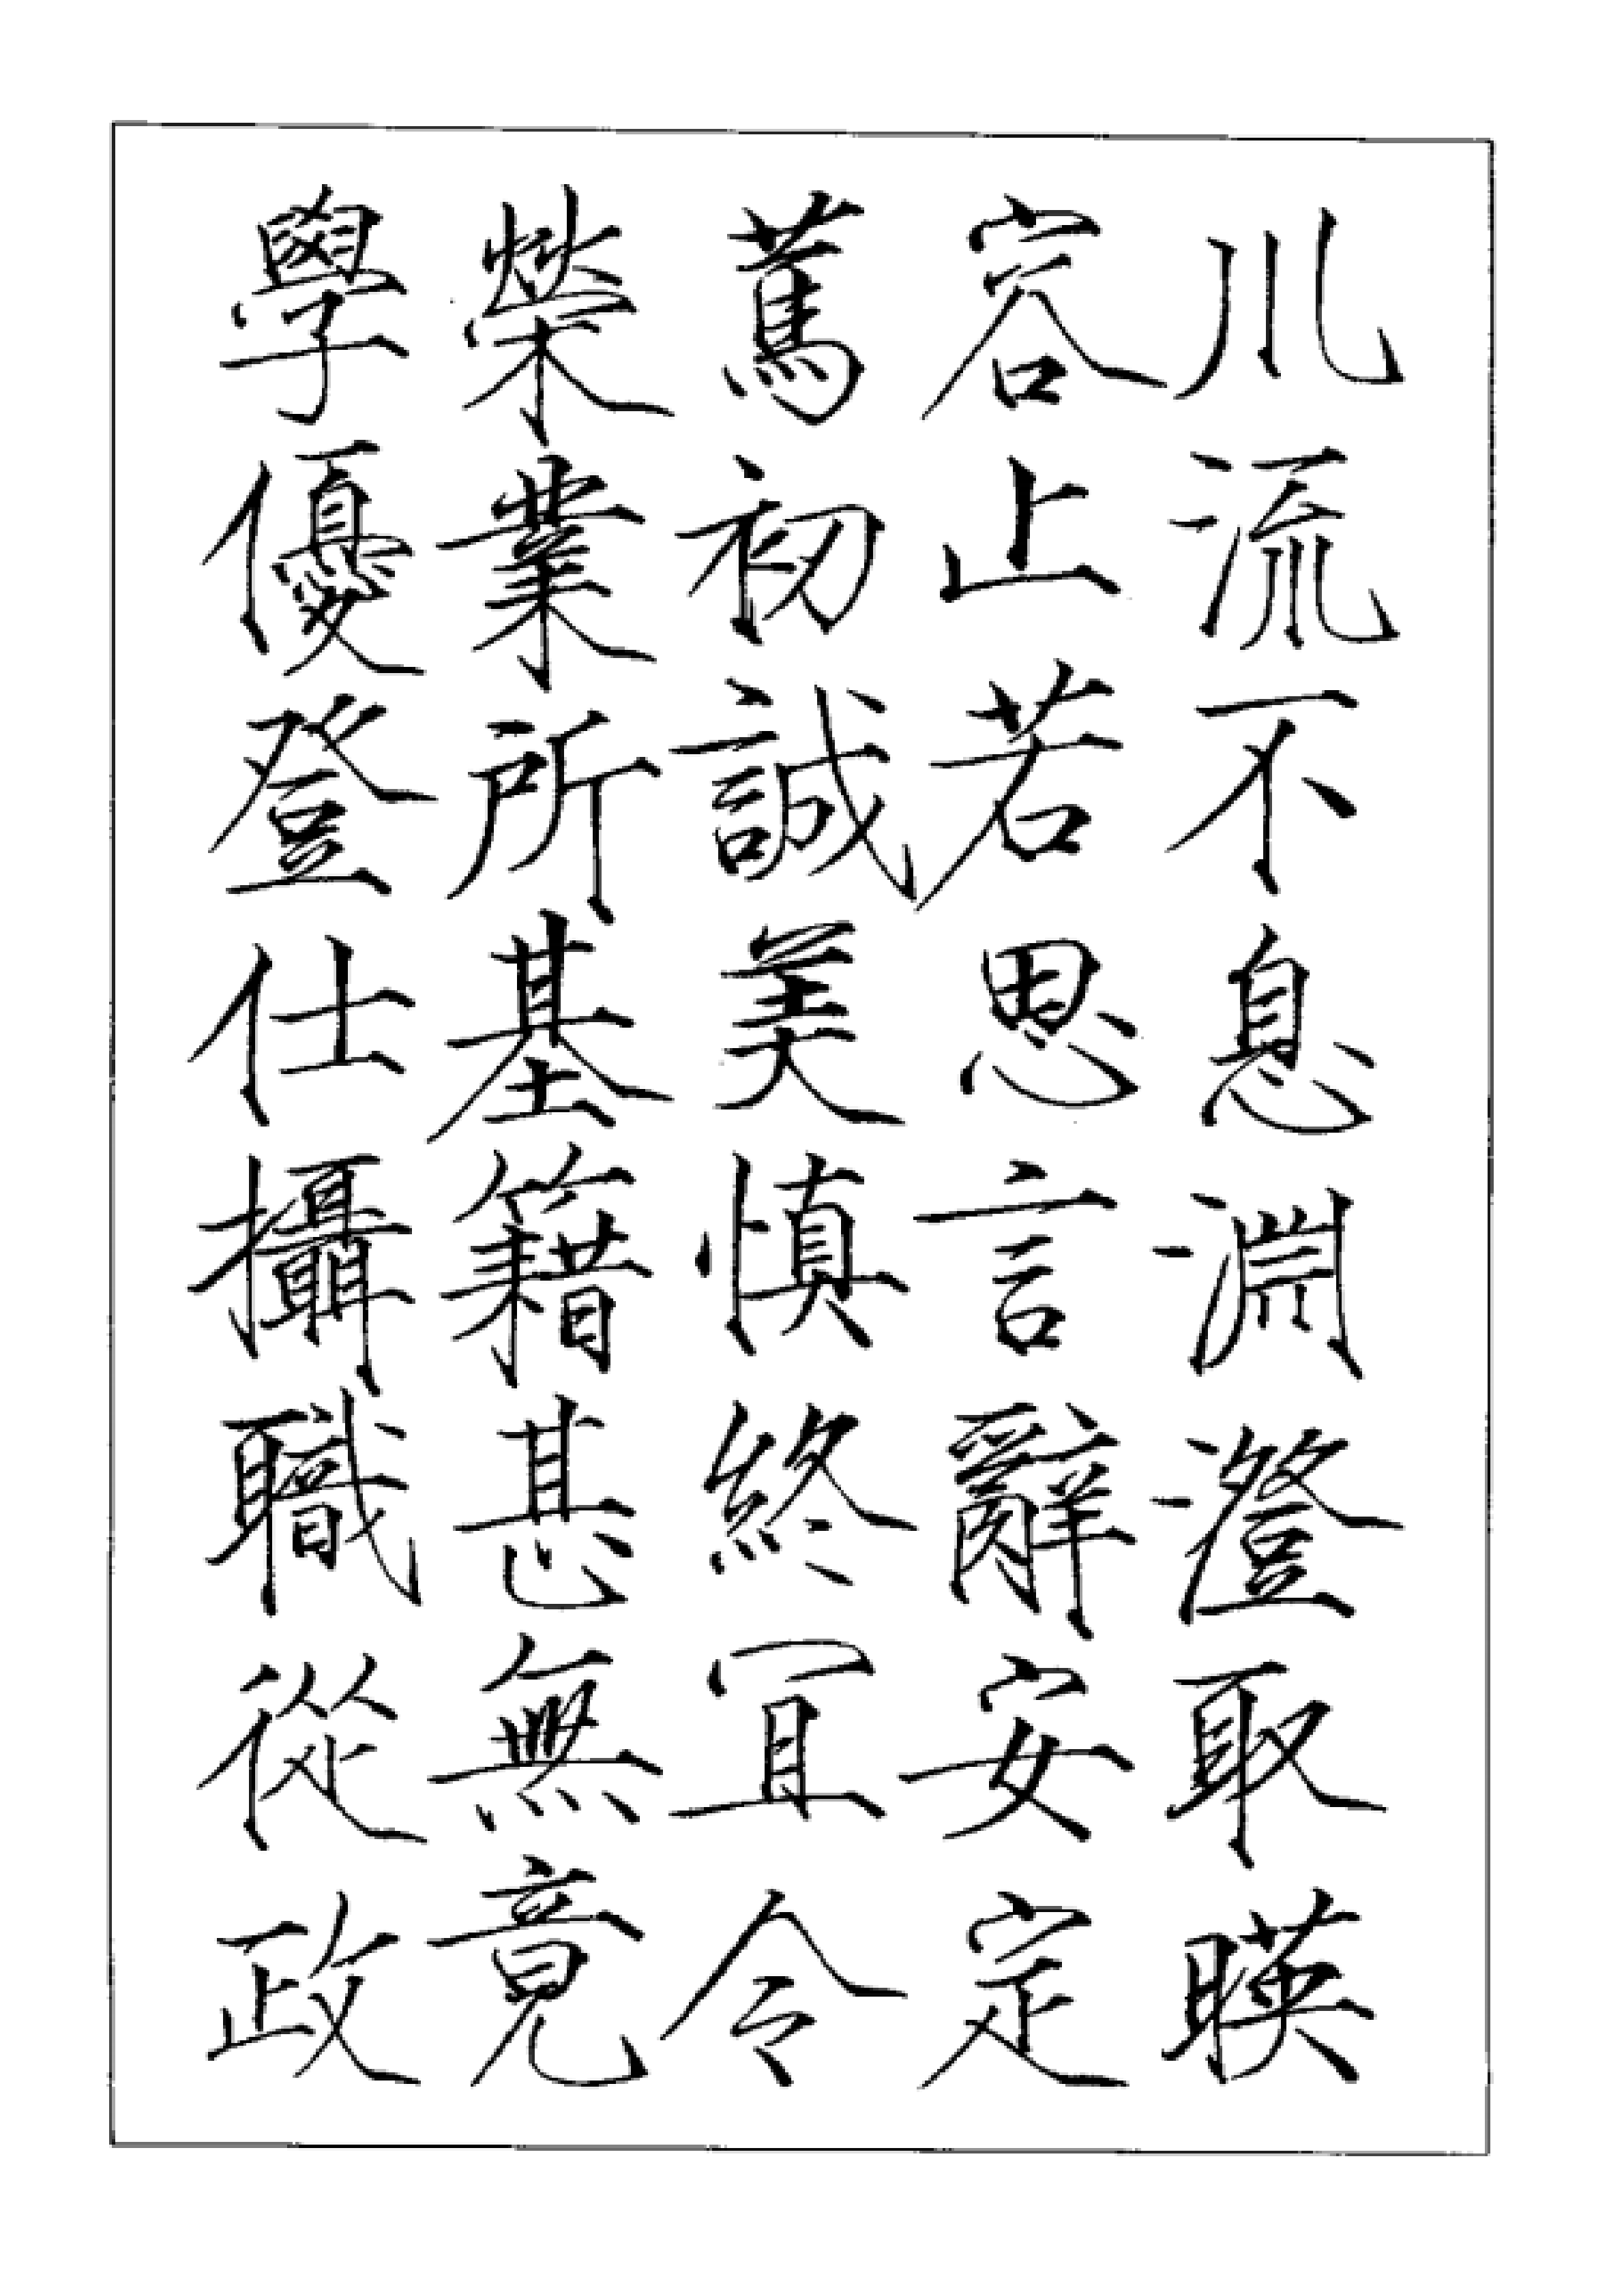 川流不息淵澄取暎
容止若思言辭安定
篤初誠美慎終宜令
榮業所基籍甚無竟
學優登仕攝職從政